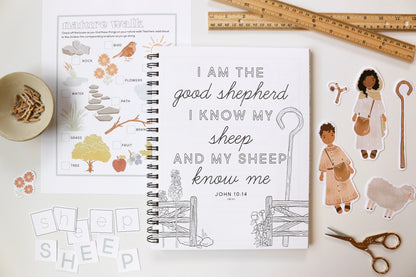 nature walk
ROCKS
BIRD
FLOWERS
WATER
PATH
STICK
GRASS
TREE
FRUIT
BUG
I AM THE
good shepherd
I KNOW MY
sheep
AND MY SHEEP
know me
JOHN 10:14
sheep
SHEEP